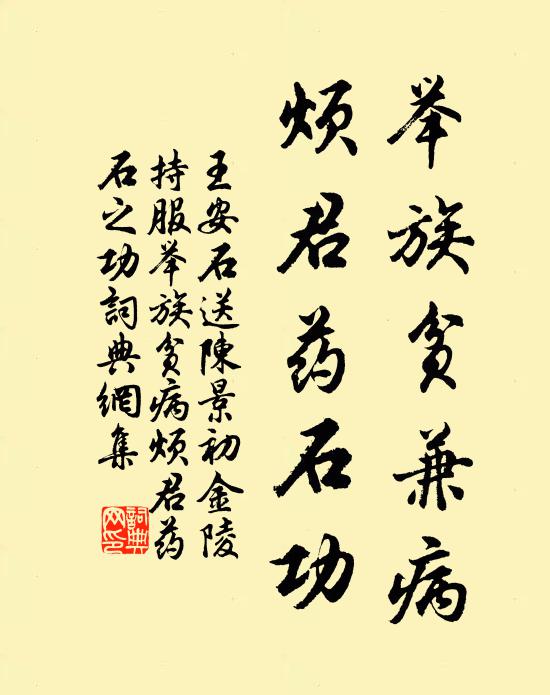 举族贫兼病
烦君药石功
王安石送陳景初金陵
持服举族贫病烦君药
石之功詞典網集
詞典网印